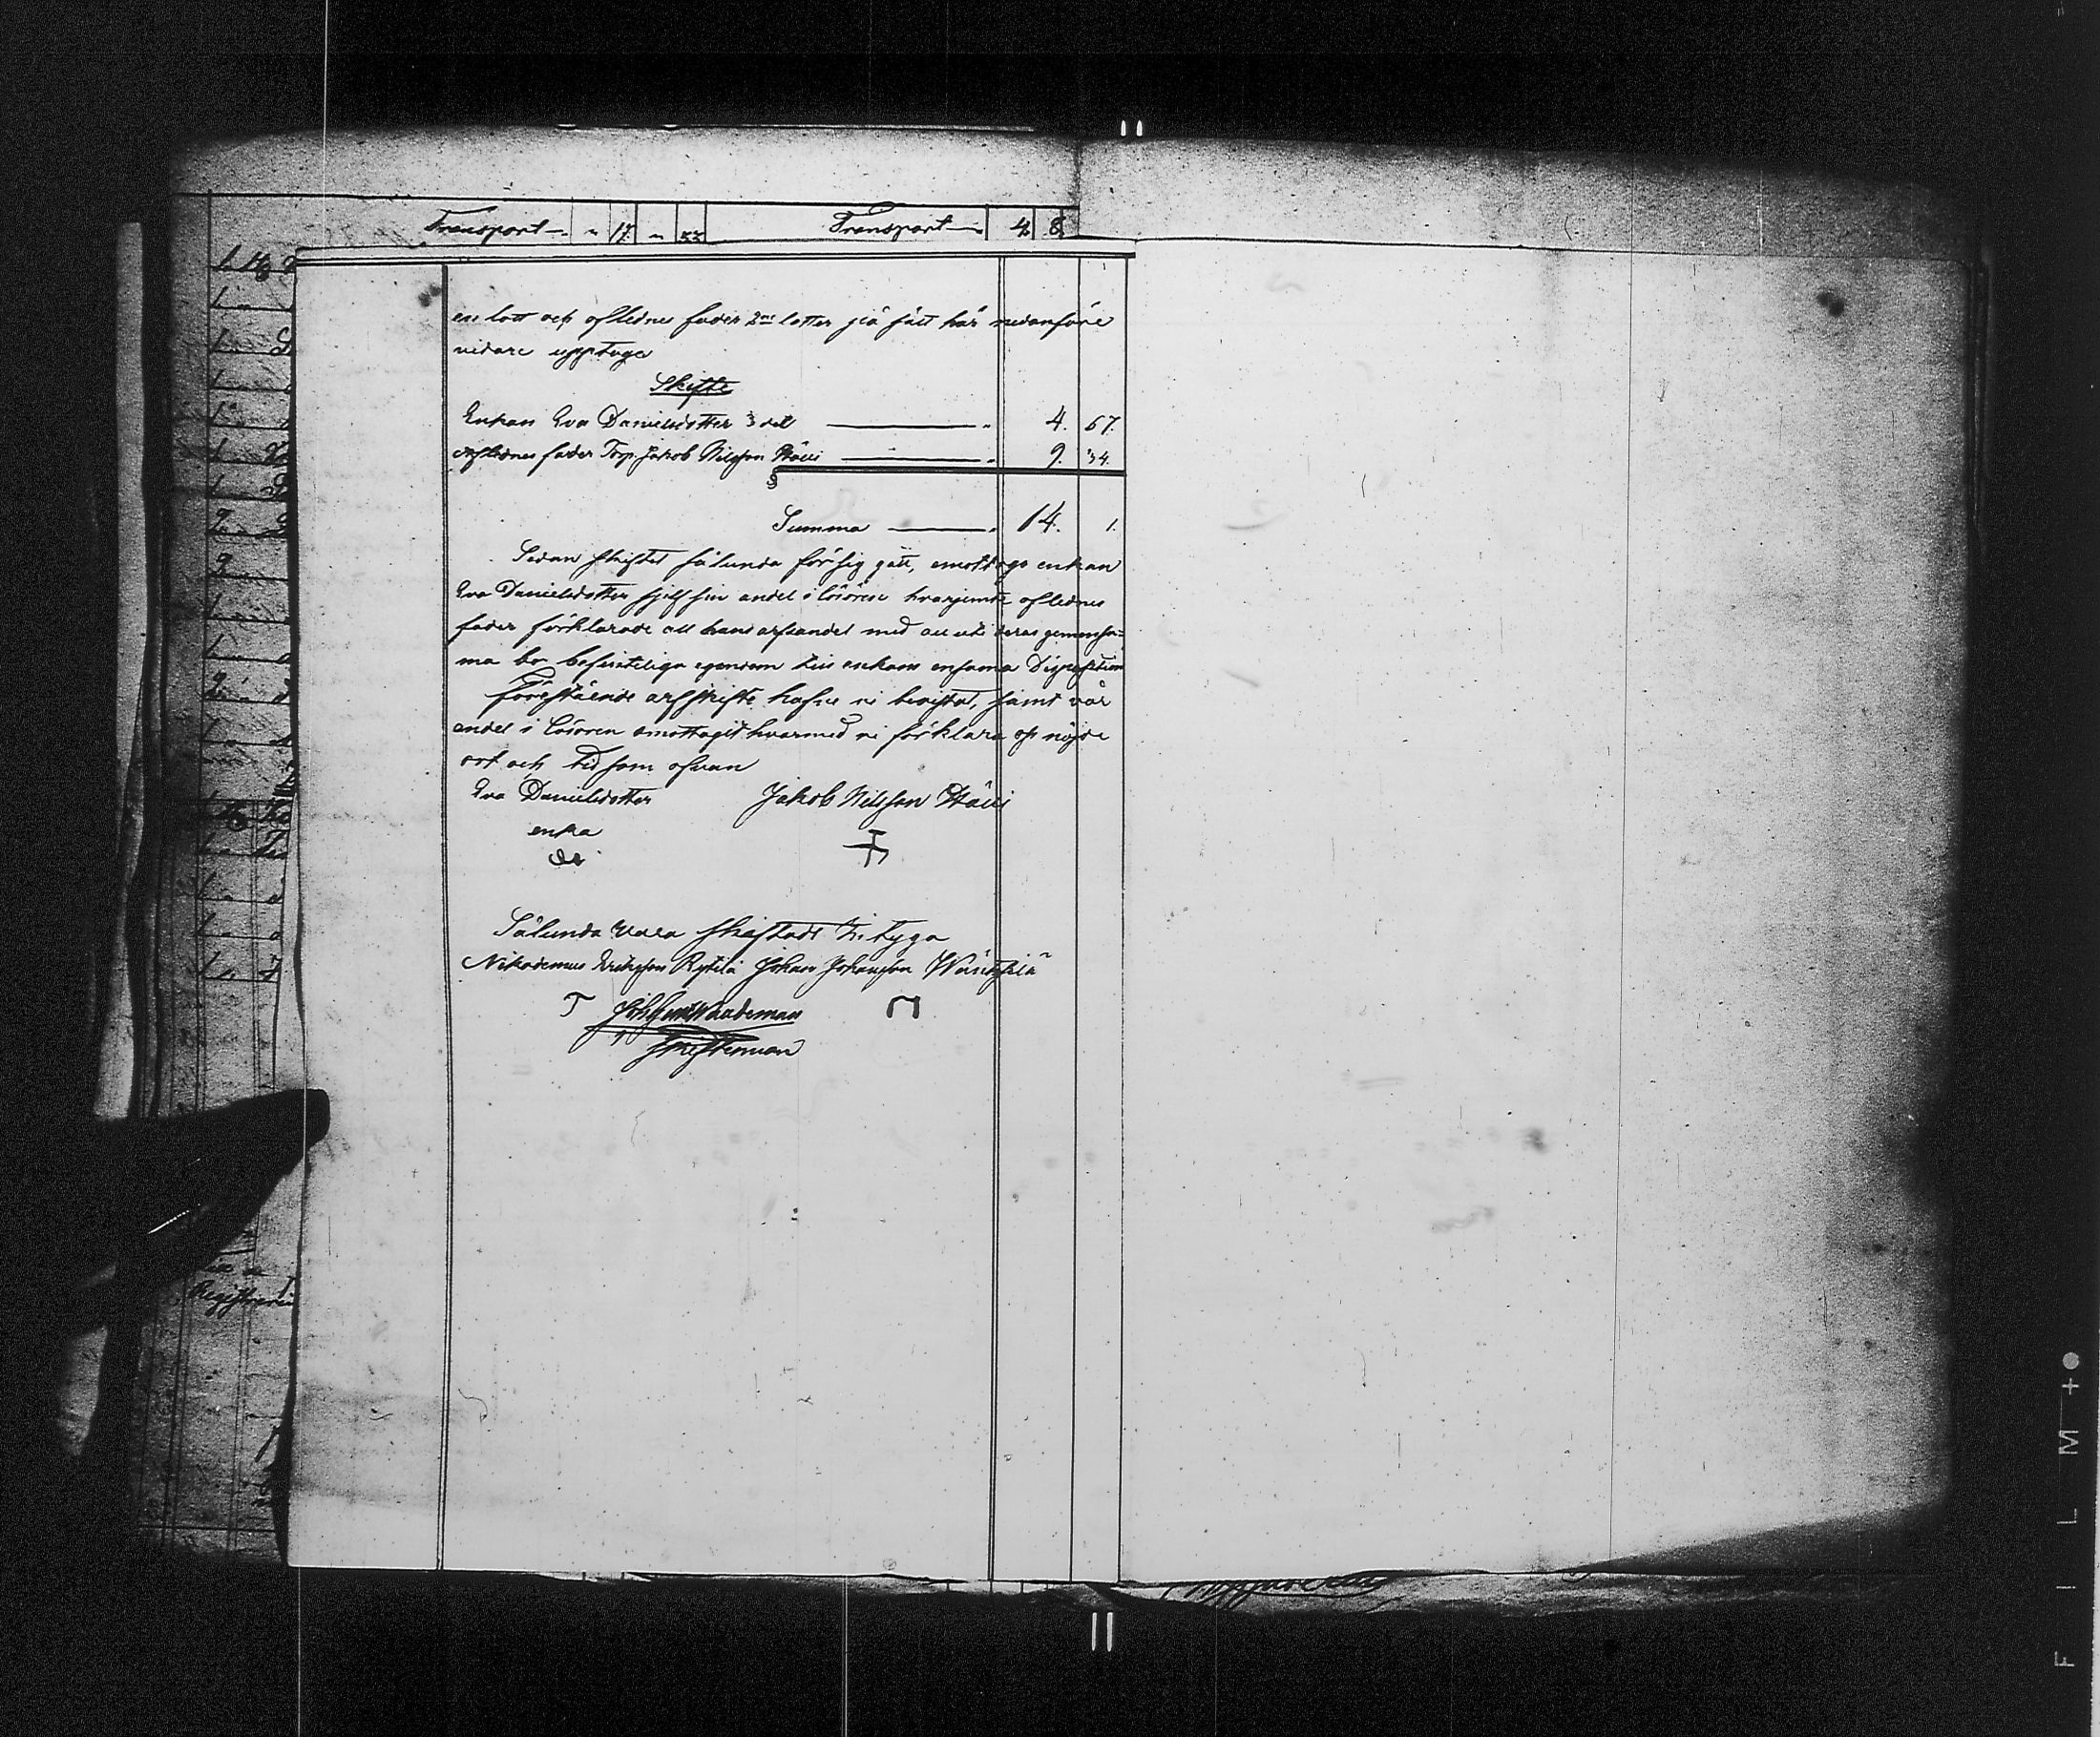 Transport — " 17. " 33 Transport — 4 8
en lott och aflednes fader 2ne lotter på sätt här nedanföre
vidare upptages
Skifte
Enkan Eva Danielsdotter 1/3 del — " 4. 67.
Aflednes fader Torp. Jakob Nilsson — " 9. 34.
Summa — " 14. 1.
Sedan skiftet sålunda försiggått, emottogo enkan
Eva Danielsdotter sjelf sin andel i lösören hvarjemte aflednes
fader förklarade att hans arfsandel med all uti deras gemensa=
ma bo befinteliga egendom till enkans ensama Disposition
Förestående arfskifte hafve vi bevistat, samt vår
andel i lösören emottagit hvarmed vi förklara oss nöjde
ort och tid som ofvan
Eva Danielsdotter Jakob Nilsson
enka
Sålunda vara skiftadt betyga
Nikodemus Eriksson Rytilä Johan Johansson
Skiftesman
Registrerin
F I L M + ●